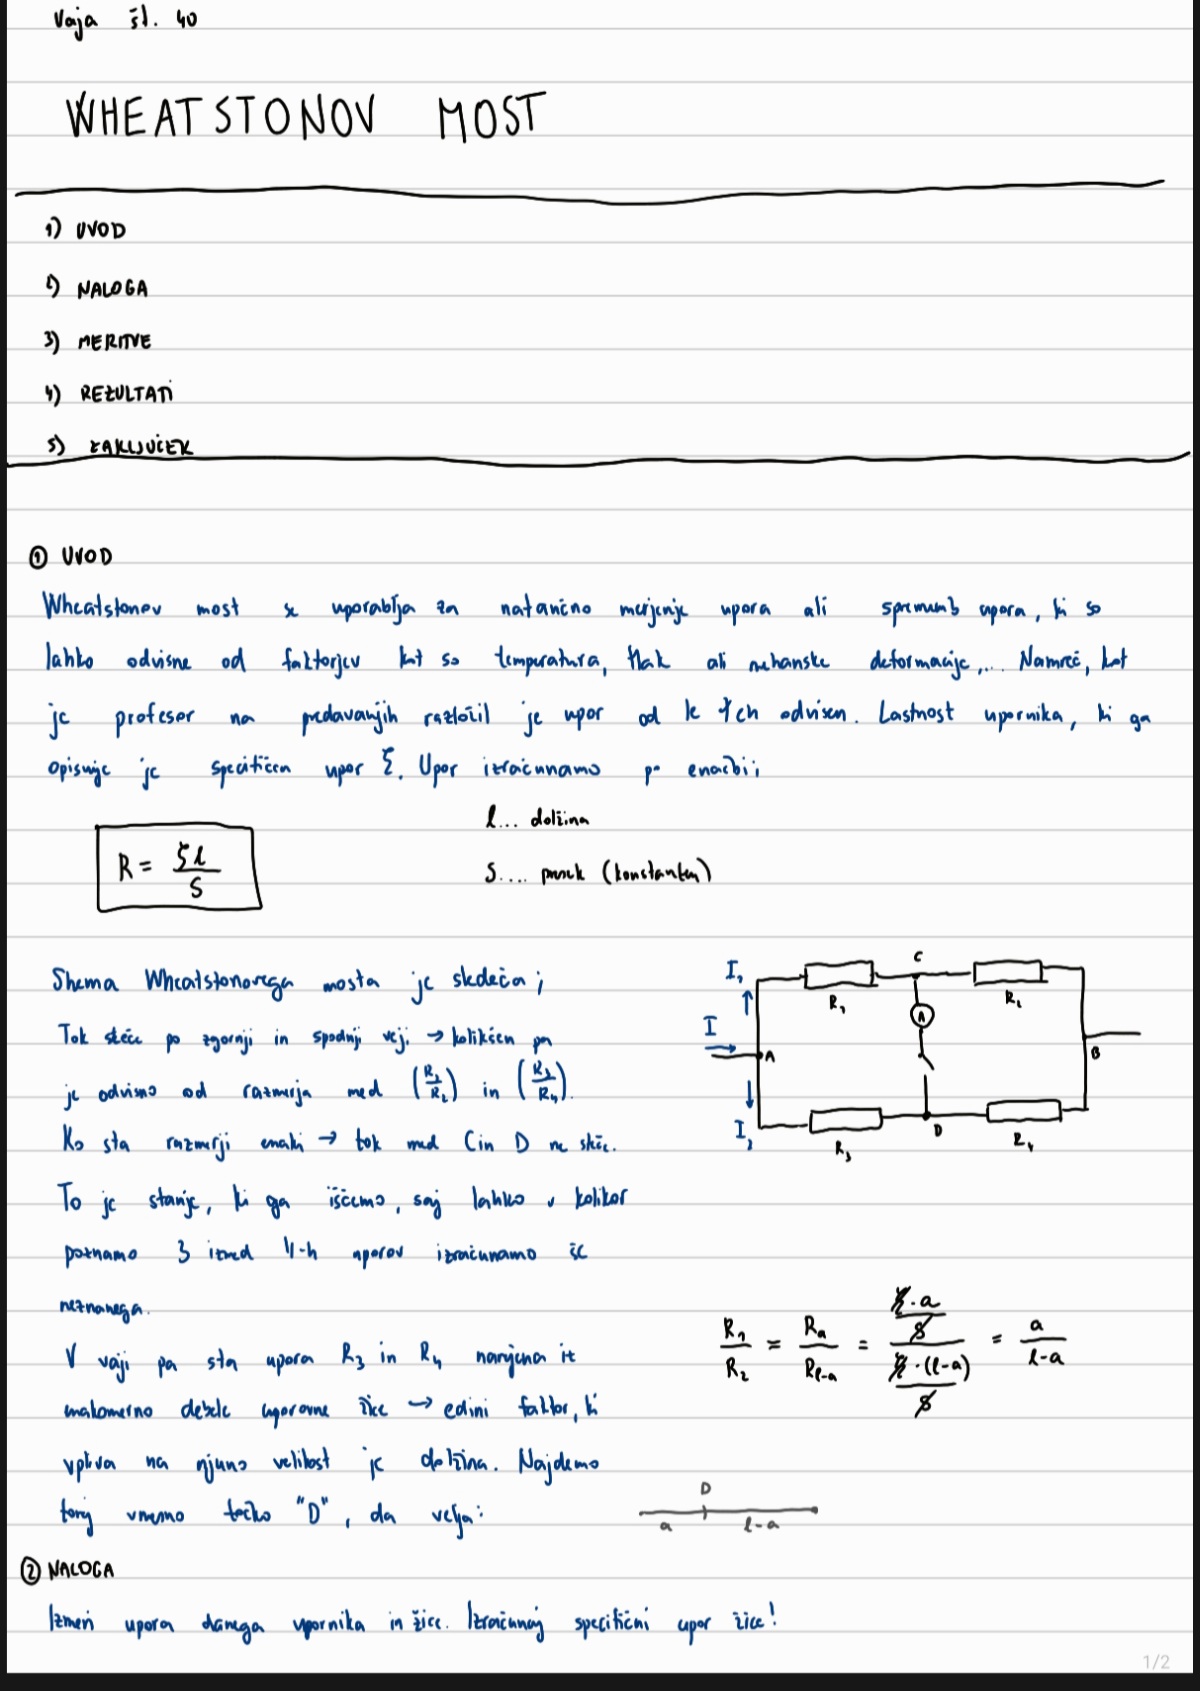 Vaja št. 40
WHEATSTONOV MOST
1) UVOD
2) NALOGA
3) MERITVE
4) REZULTATI
5) ZAKLJUČEK
① UVOD
Wheatstonov most se uporablja za natančno merjenje upora ali sprememb upora, ki so
lahko odvisne od faktorjev kot so temperatura, tlak ali mehanske deformacije,... Namreč, kot
je profesor na predavanjih razložil je upor od le teh odvisen. Lastnost upornika, ki ga
opisuje je specifičen upor ζ. Upor izračunamo po enačbi:
R = ζl/S
l... dolžina
S.... presek (konstanten)
Shema Wheatstonovega mosta je sledeča;
Tok steče po zgornji in spodnji veji → kolikšen pa
je odvisno od razmerja med (R₁/R₂) in (R₃/R₄).
Ko sta razmerji enaki → tok med C in D ne steče.
To je stanje, ki ga iščemo, saj lahko v kolikor
poznamo 3 izmed 4-h uporov izračunamo še
neznanega.
I₁ R₁ C R₂
I A A B
I₂ R₃ D R₄
V vaji pa sta upora R₃ in R₄ narejena iz
enakomerno debele uporovne žice → edini faktor, ki
vpliva na njuno velikost je dolžina. Najdemo
torej vmesno točko "D", da velja:
R₁/R₂ = Rₐ/Rₗ₋ₐ = (ζ·a/S)/(ζ·(l-a)/S) = a/(l-a)
D
a l-a
② NALOGA
Izmeri upora danega upornika in žice. Izračunaj specifični upor žice!
1/2